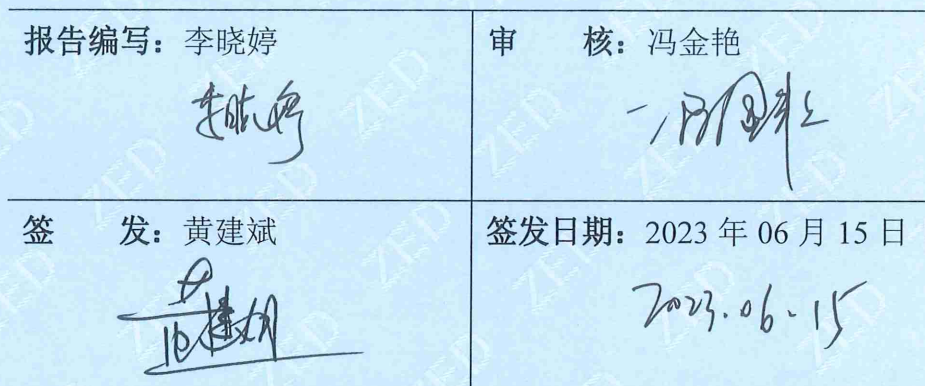 报告编写：李晓婷
审 核：冯金艳
李晓婷
冯金艳
签 发：黄建斌
签发日期：2023 年 06 月 15 日
2023.06.15
ZED